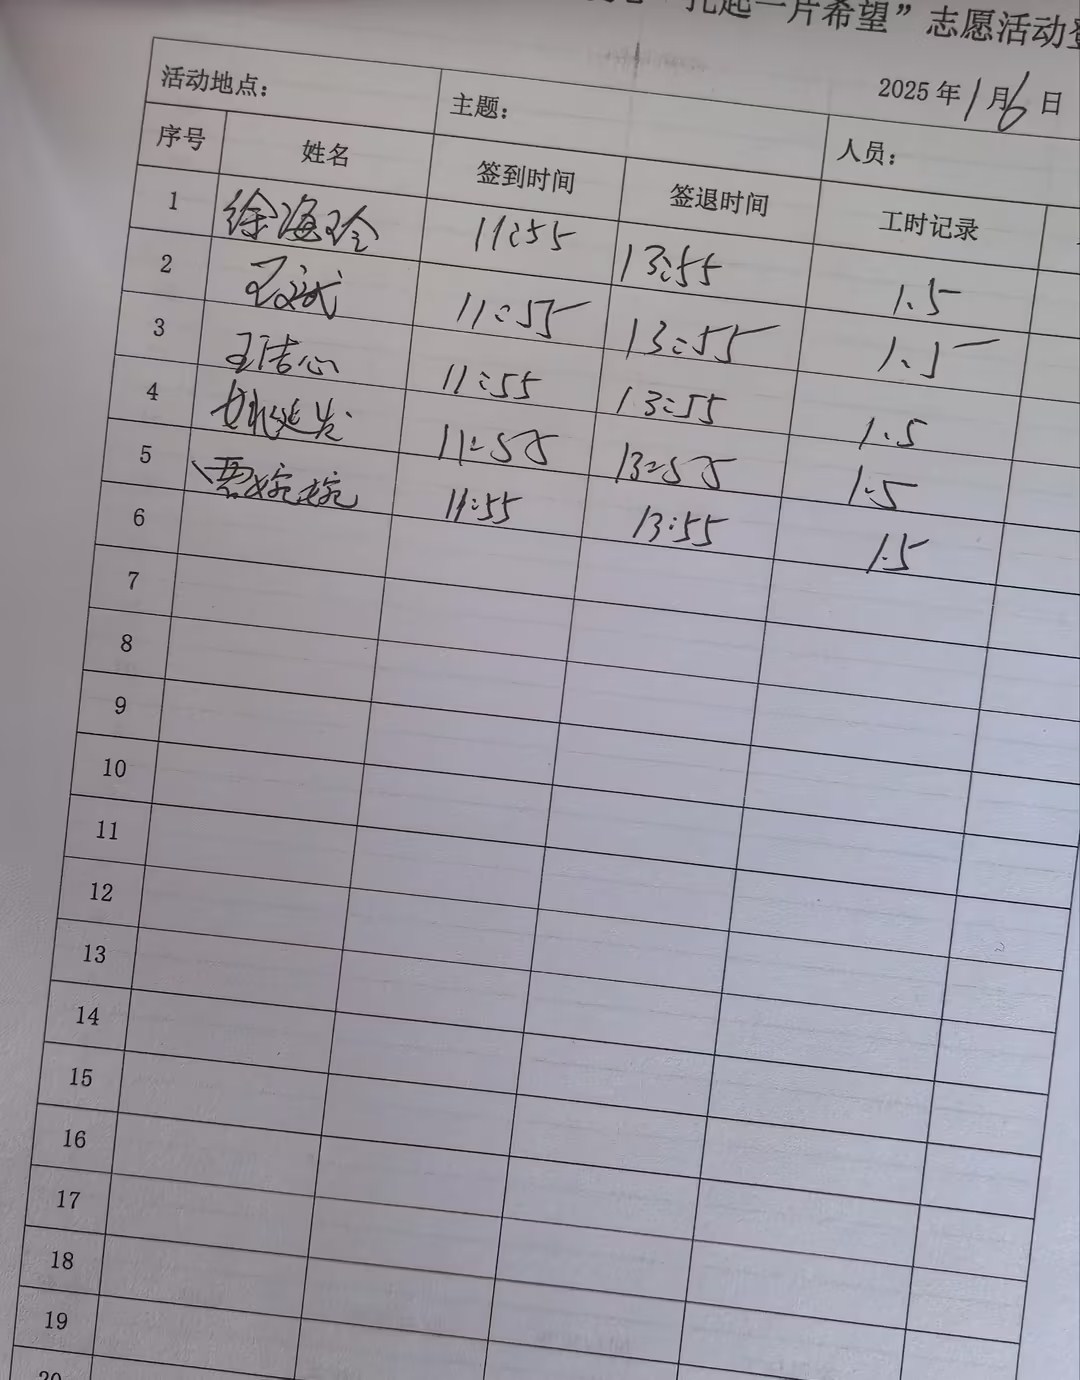 起一片希望”志愿活动
2025年1月6日
活动地点： 主题： 人员：
序号 姓名 签到时间 签退时间 工时记录
1 徐海玲 11:55 13:55 1.5
2 11:55 13:55 1.5
3 王洁心 11:55 13:55 1.5
4 姚延发 11:55 13:55 1.5
5 贾婉婉 11:55 13:55 1.5
6
7
8
9
10
11
12
13
14
15
16
17
18
19
20